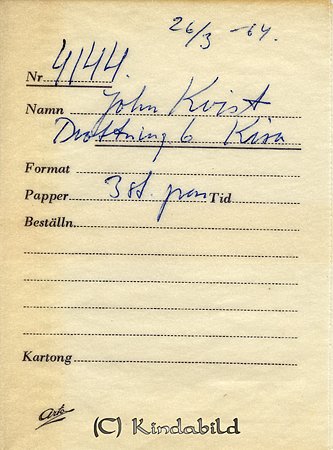 26/3 -64.
Nr 4144.
Namn John Kvist
Drottning 6 Kisa
Format
Papper 3 st. Tid
Beställn.
Kartong
Arto
(C) Kindabild